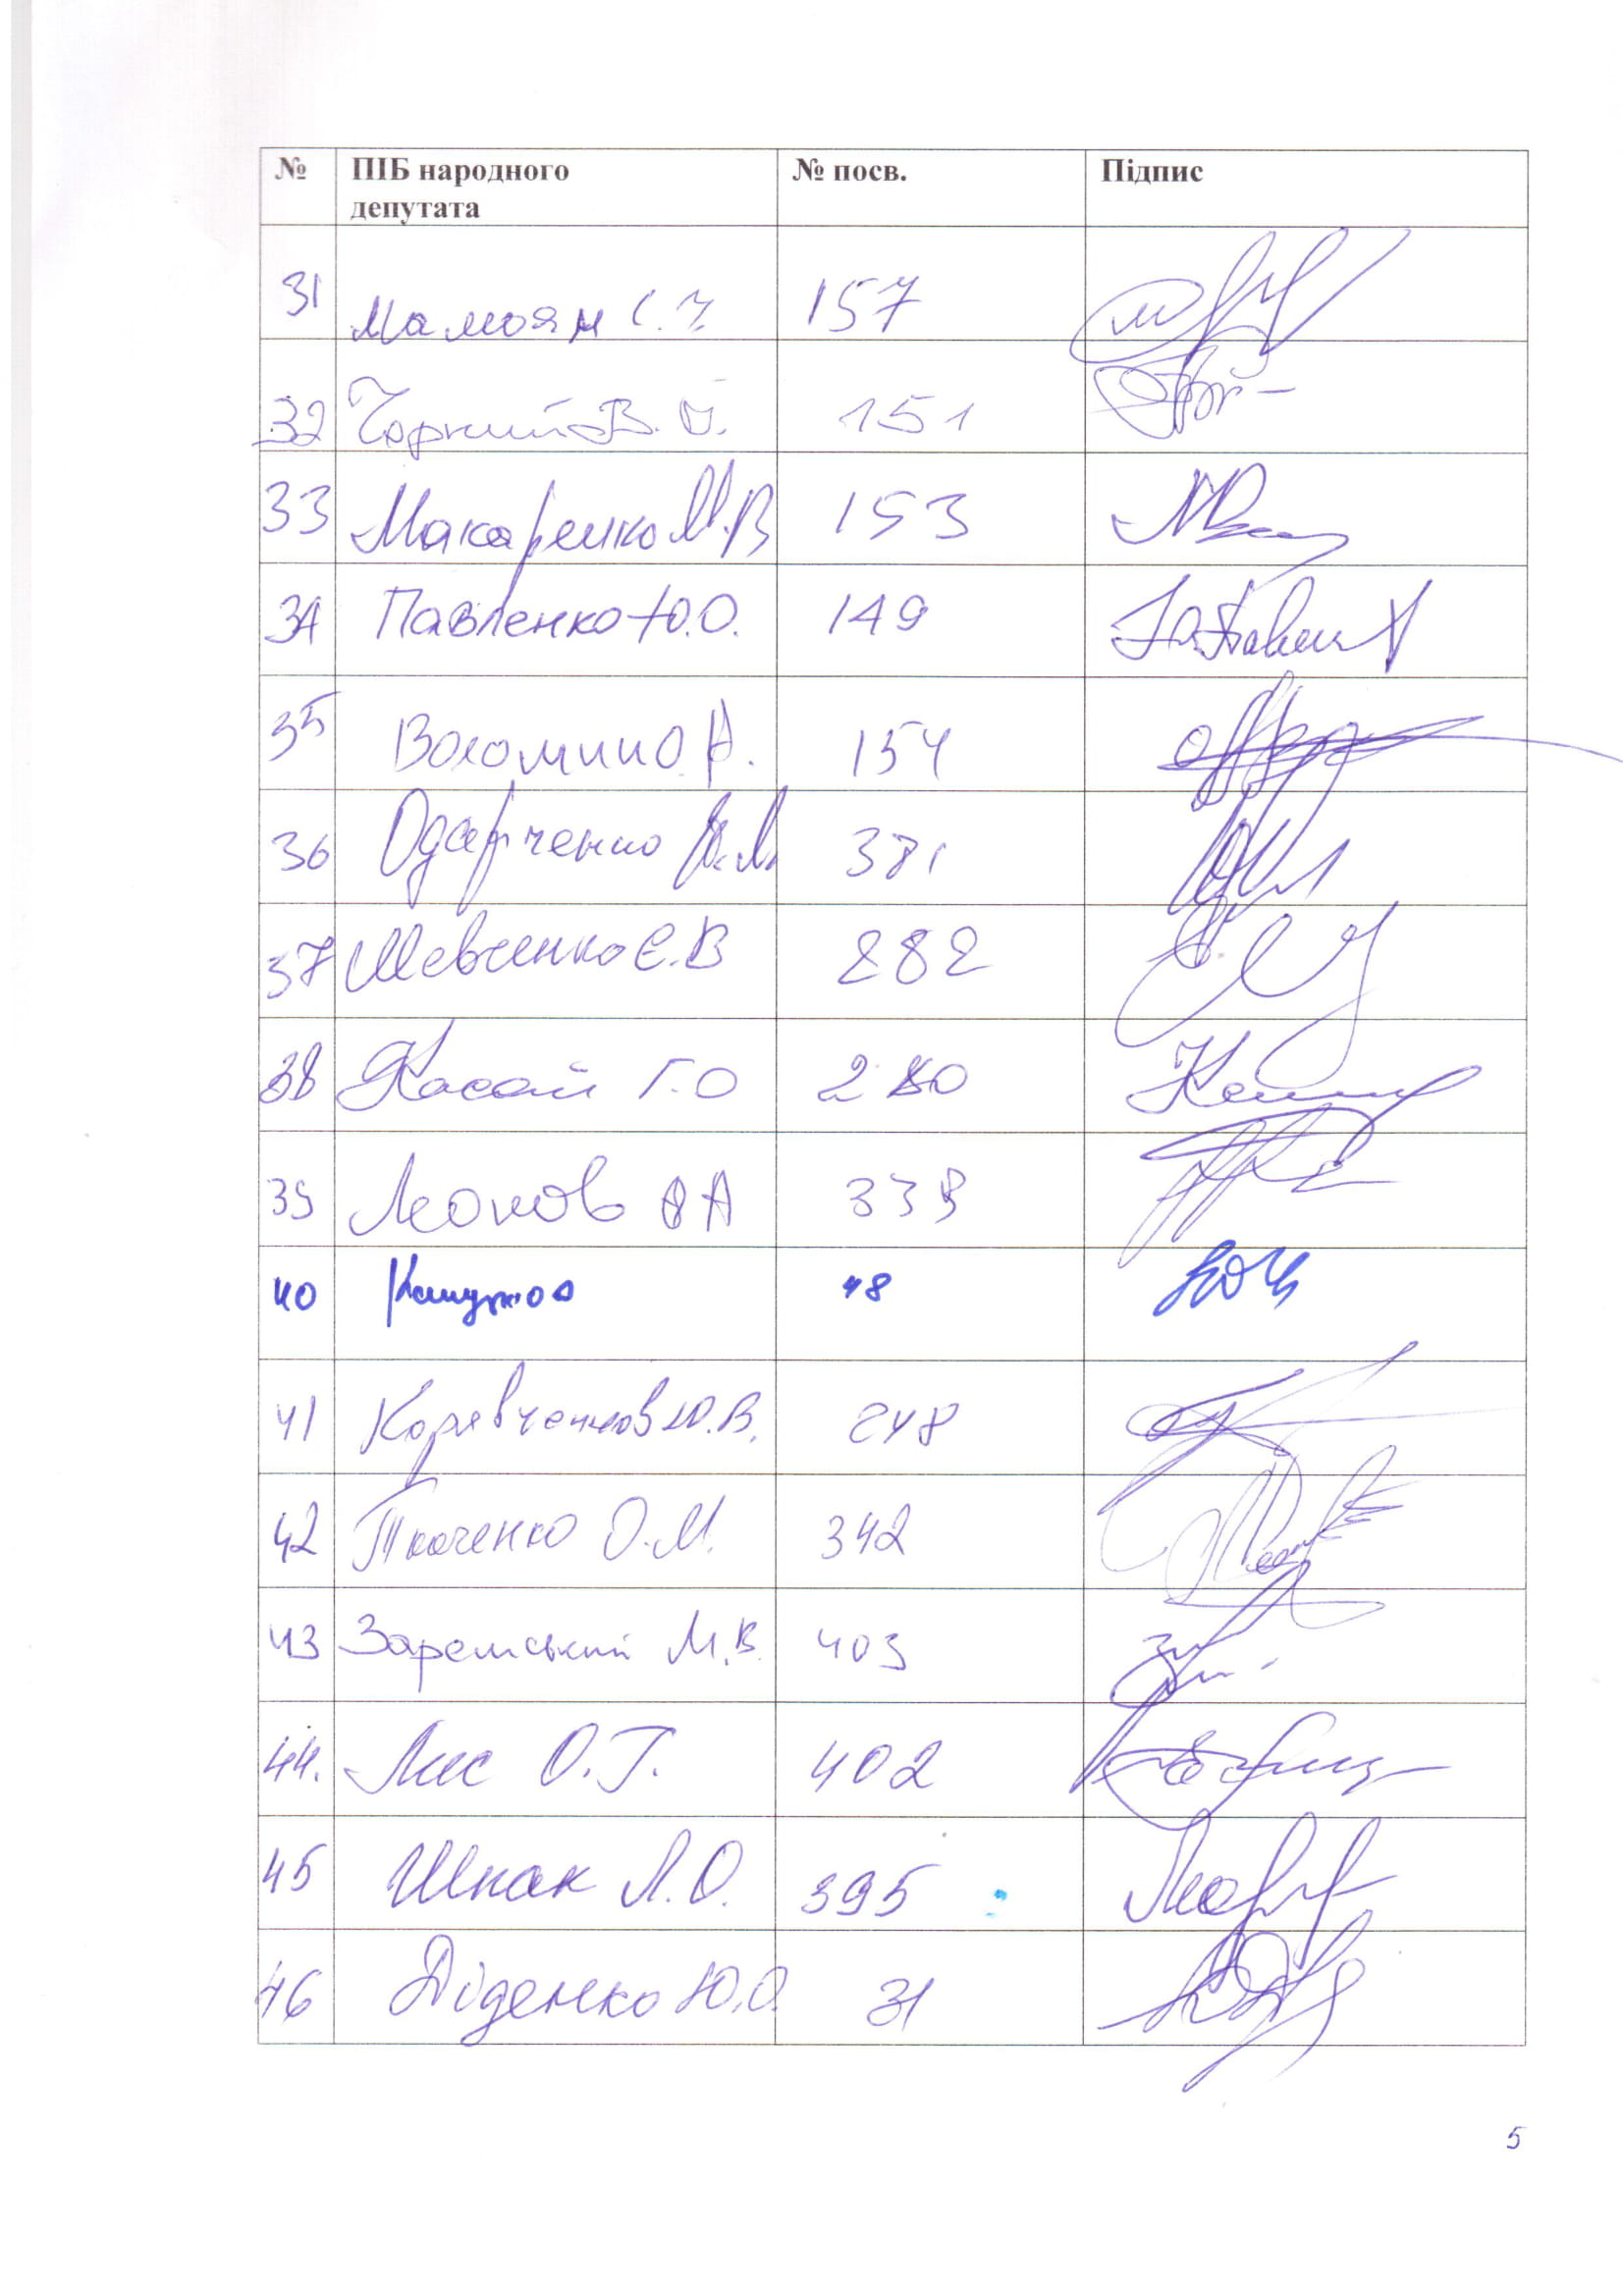 № ПІБ народного депутата № посв. Підпис
31 Мамоян С. Ч 157
32 Чорний В. І. 151
33 Макаренко М.В 153
34 Павленко Ю.О. 149
35 154
36 Одарченко Ю.М. 381
37 Шевченко Є.В 282
38 Касай Г.О 280
39 Леонов О О 338
40 48
41 Корявченков Ю.В. 248
42 Ткаченко О.М. 342
43 Заремський М.В. 403
44. Лис О.Г. 402
45 Шпак Л.О. 395
46 Діденко Ю.О. 31
5